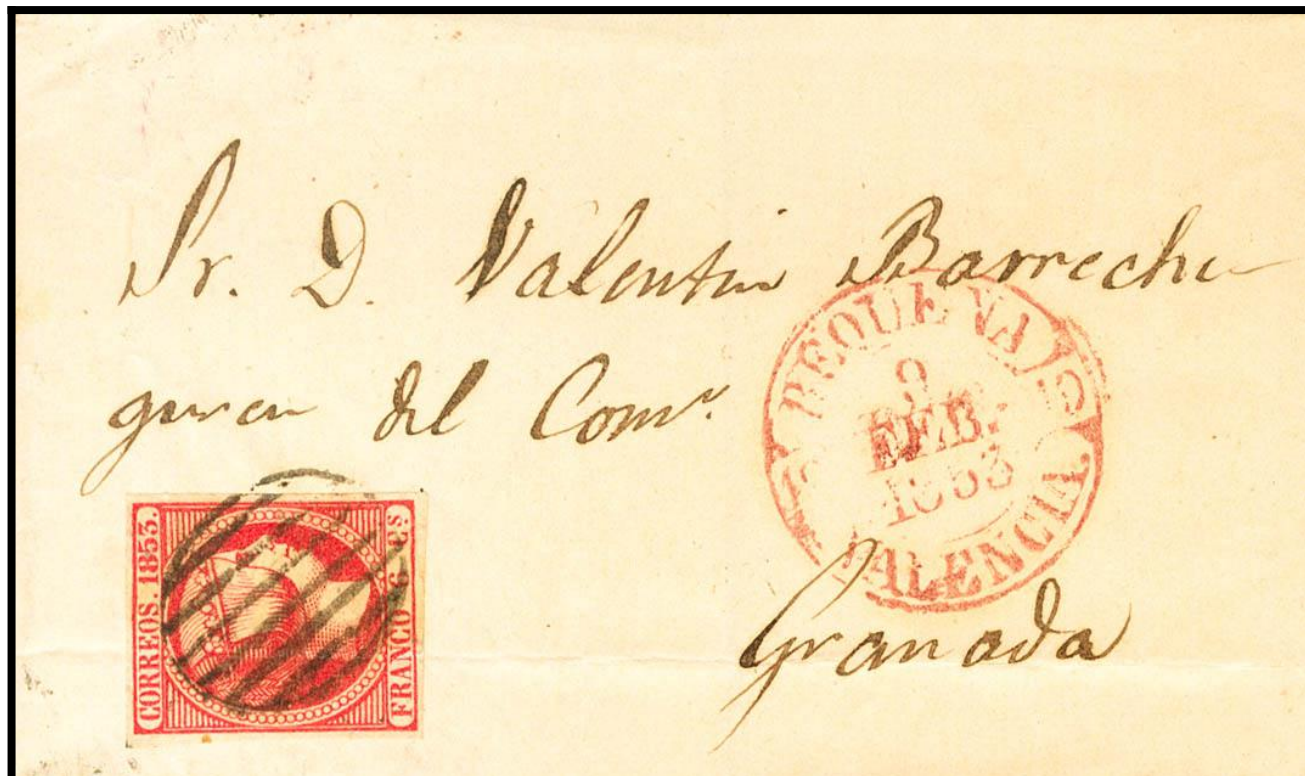 Sr. D. Valentin Barreche
guren del Como.
REQUENA
9
FEB.
1853
VALENCIA
Granada
CORREOS. 1853.
FRANCO 6 cs